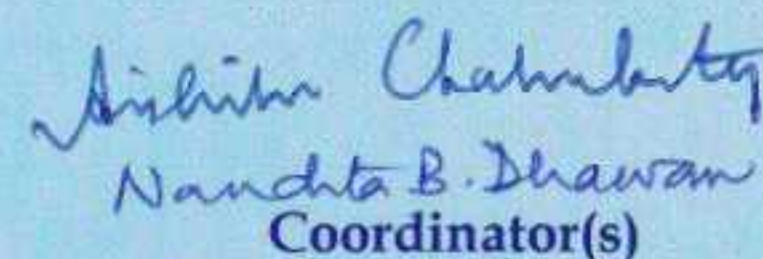 Chakraborty
Nandita B. Dhawan
Coordinator(s)